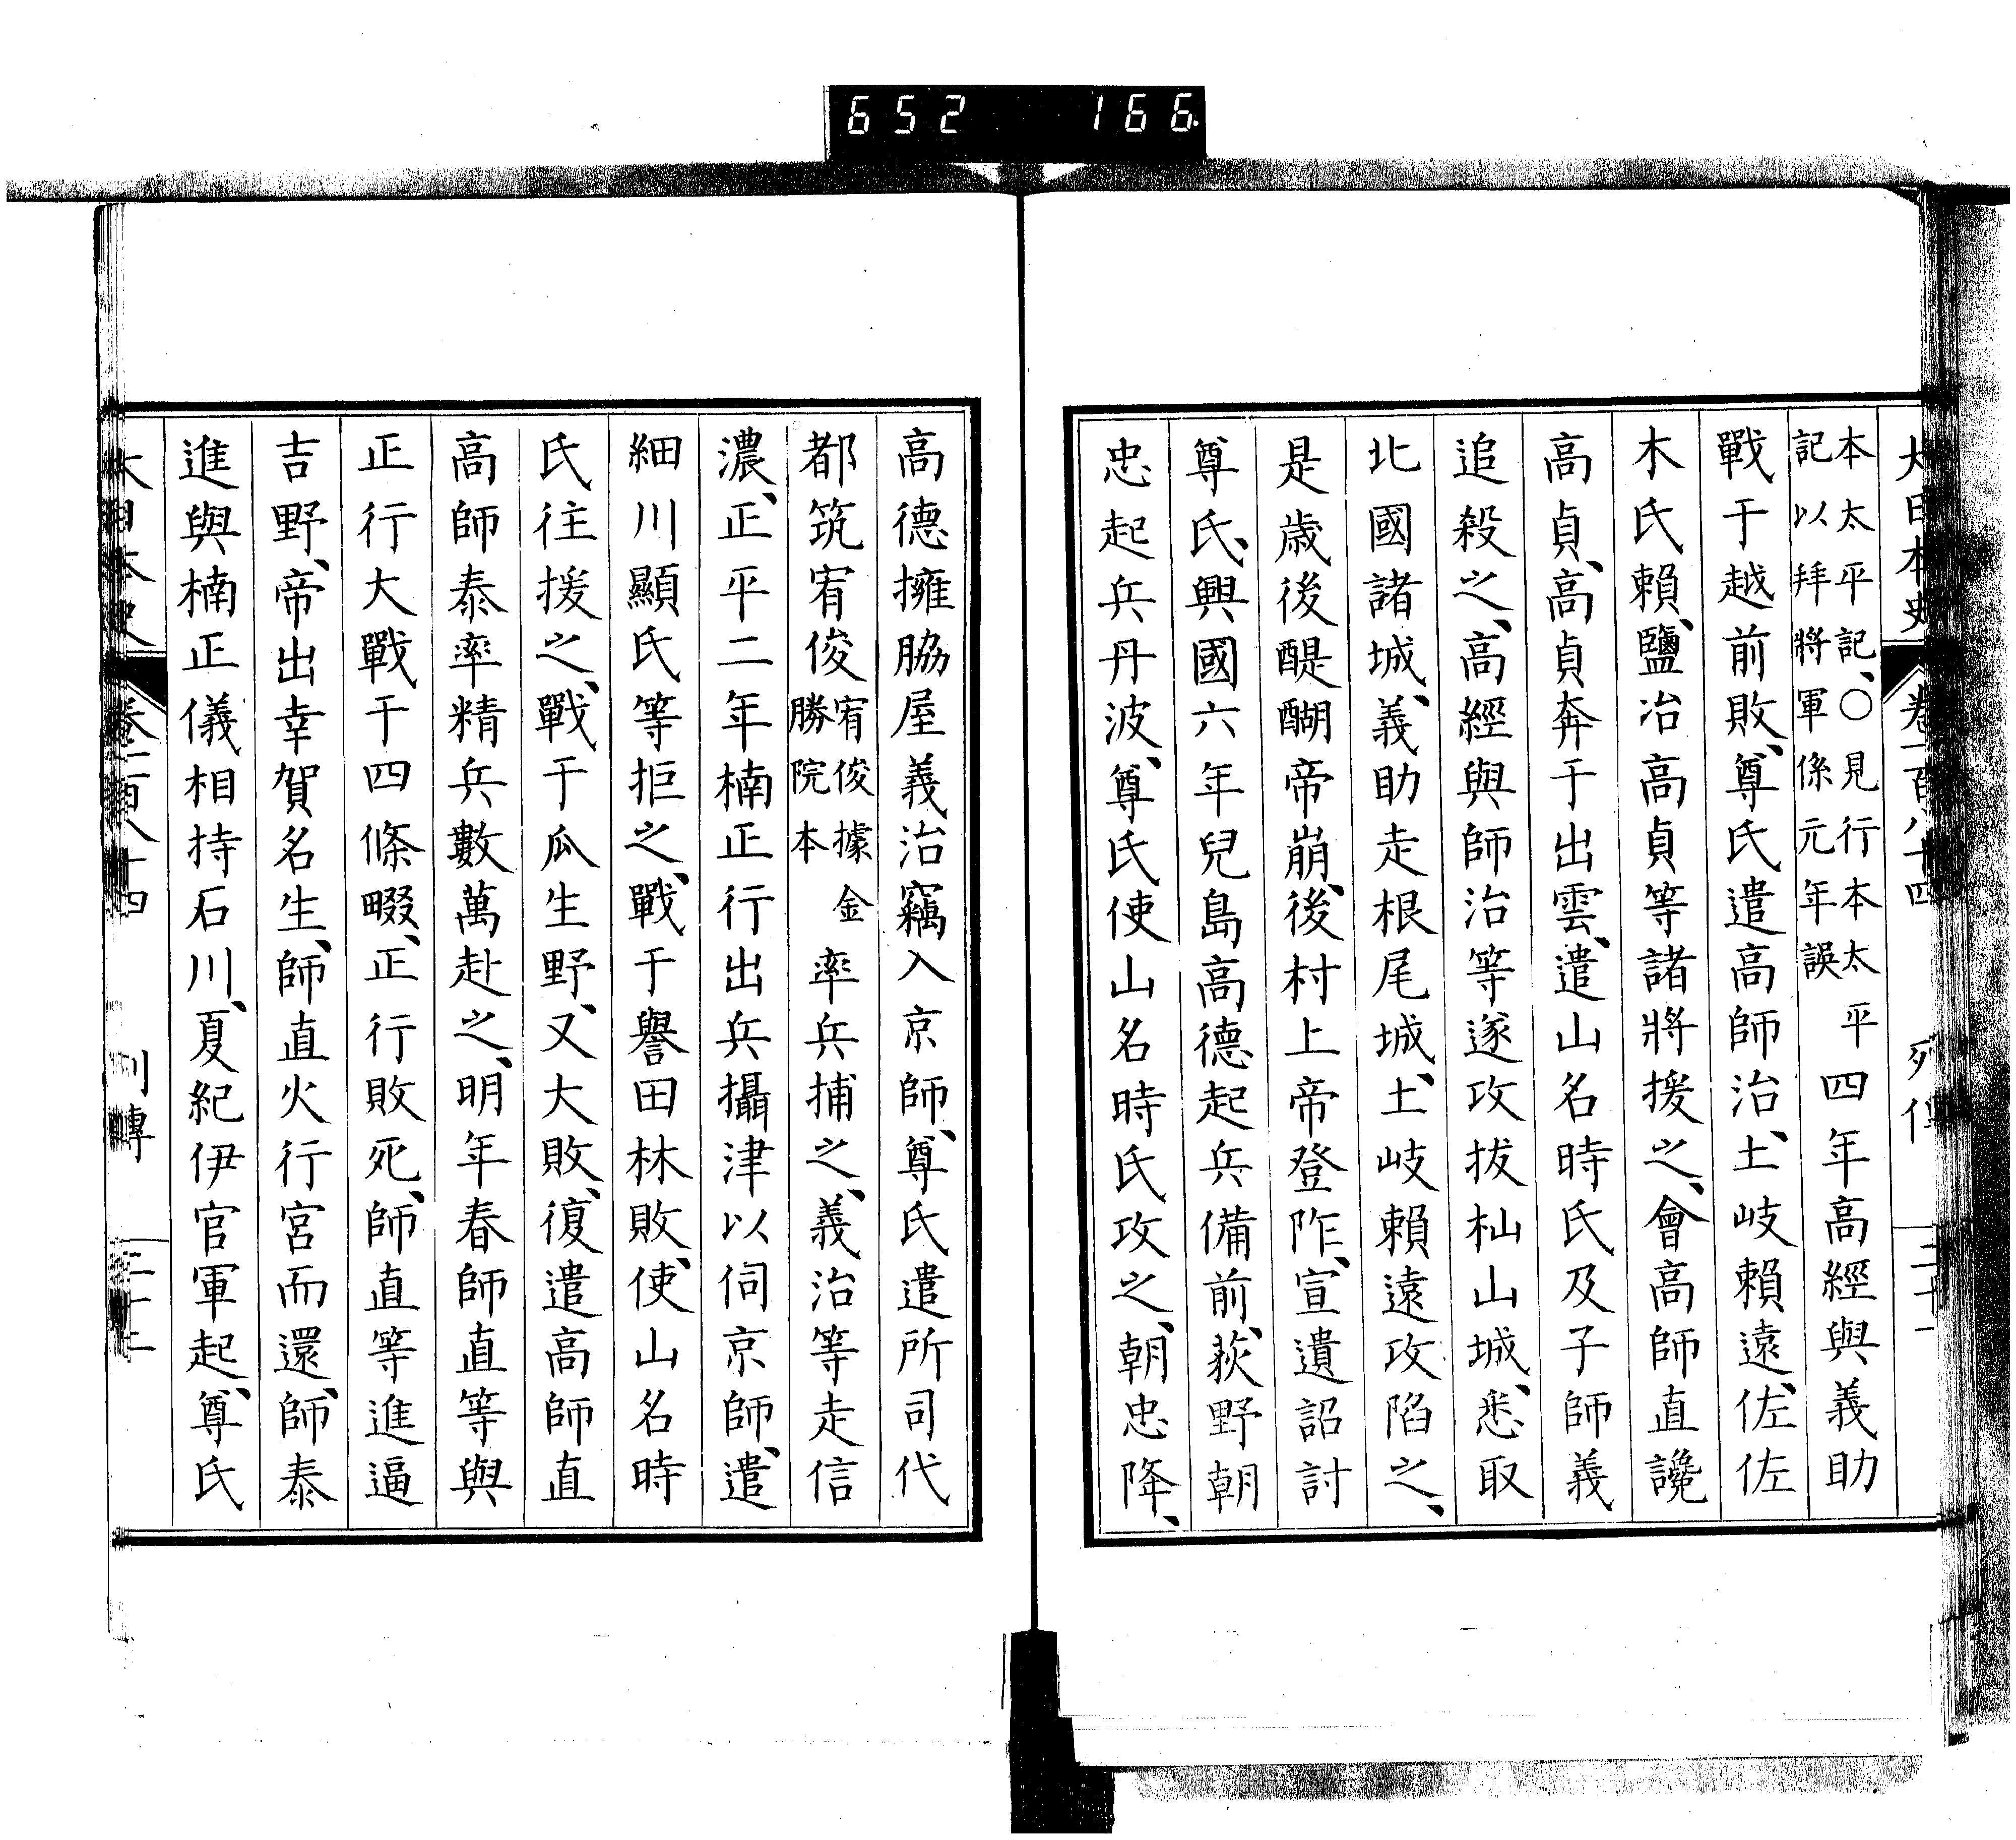 652 166
大日本史 卷一百八十四 列傳
本太平記、〇見行本太平
記以拜將軍係元年誤
四年高經與義助
戰于越前敗、尊氏遣高師治、土岐賴遠、佐佐
木氏賴、鹽冶高貞等諸將援之、會高師直讒
高貞、高貞奔于出雲、遣山名時氏及子師義
追殺之、高經與師治等遂攻拔杣山城、悉取
北國諸城、義助走根尾城、土岐賴遠攻陷之、
是歲後醍醐帝崩、後村上帝登阼、宣遺詔討
尊氏、興國六年兒島高德起兵備前、荻野朝
忠起兵丹波、尊氏使山名時氏攻之、朝忠降、
高德擁脇屋義治竊入京師、尊氏遣所司代
都筑宥俊
宥俊據金
勝院本
率兵捕之、義治等走信
濃、正平二年楠正行出兵攝津以伺京師、遣
細川顯氏等拒之、戰于譽田林敗、使山名時
氏往援之、戰于瓜生野、又大敗、復遣高師直
高師泰率精兵數萬赴之、明年春師直等與
正行大戰于四條畷、正行敗死、師直等進逼
吉野、帝出幸賀名生、師直火行宮而還、師泰
進與楠正儀相持石川、夏紀伊官軍起、尊氏
大日本史 卷一百八十四 列傳